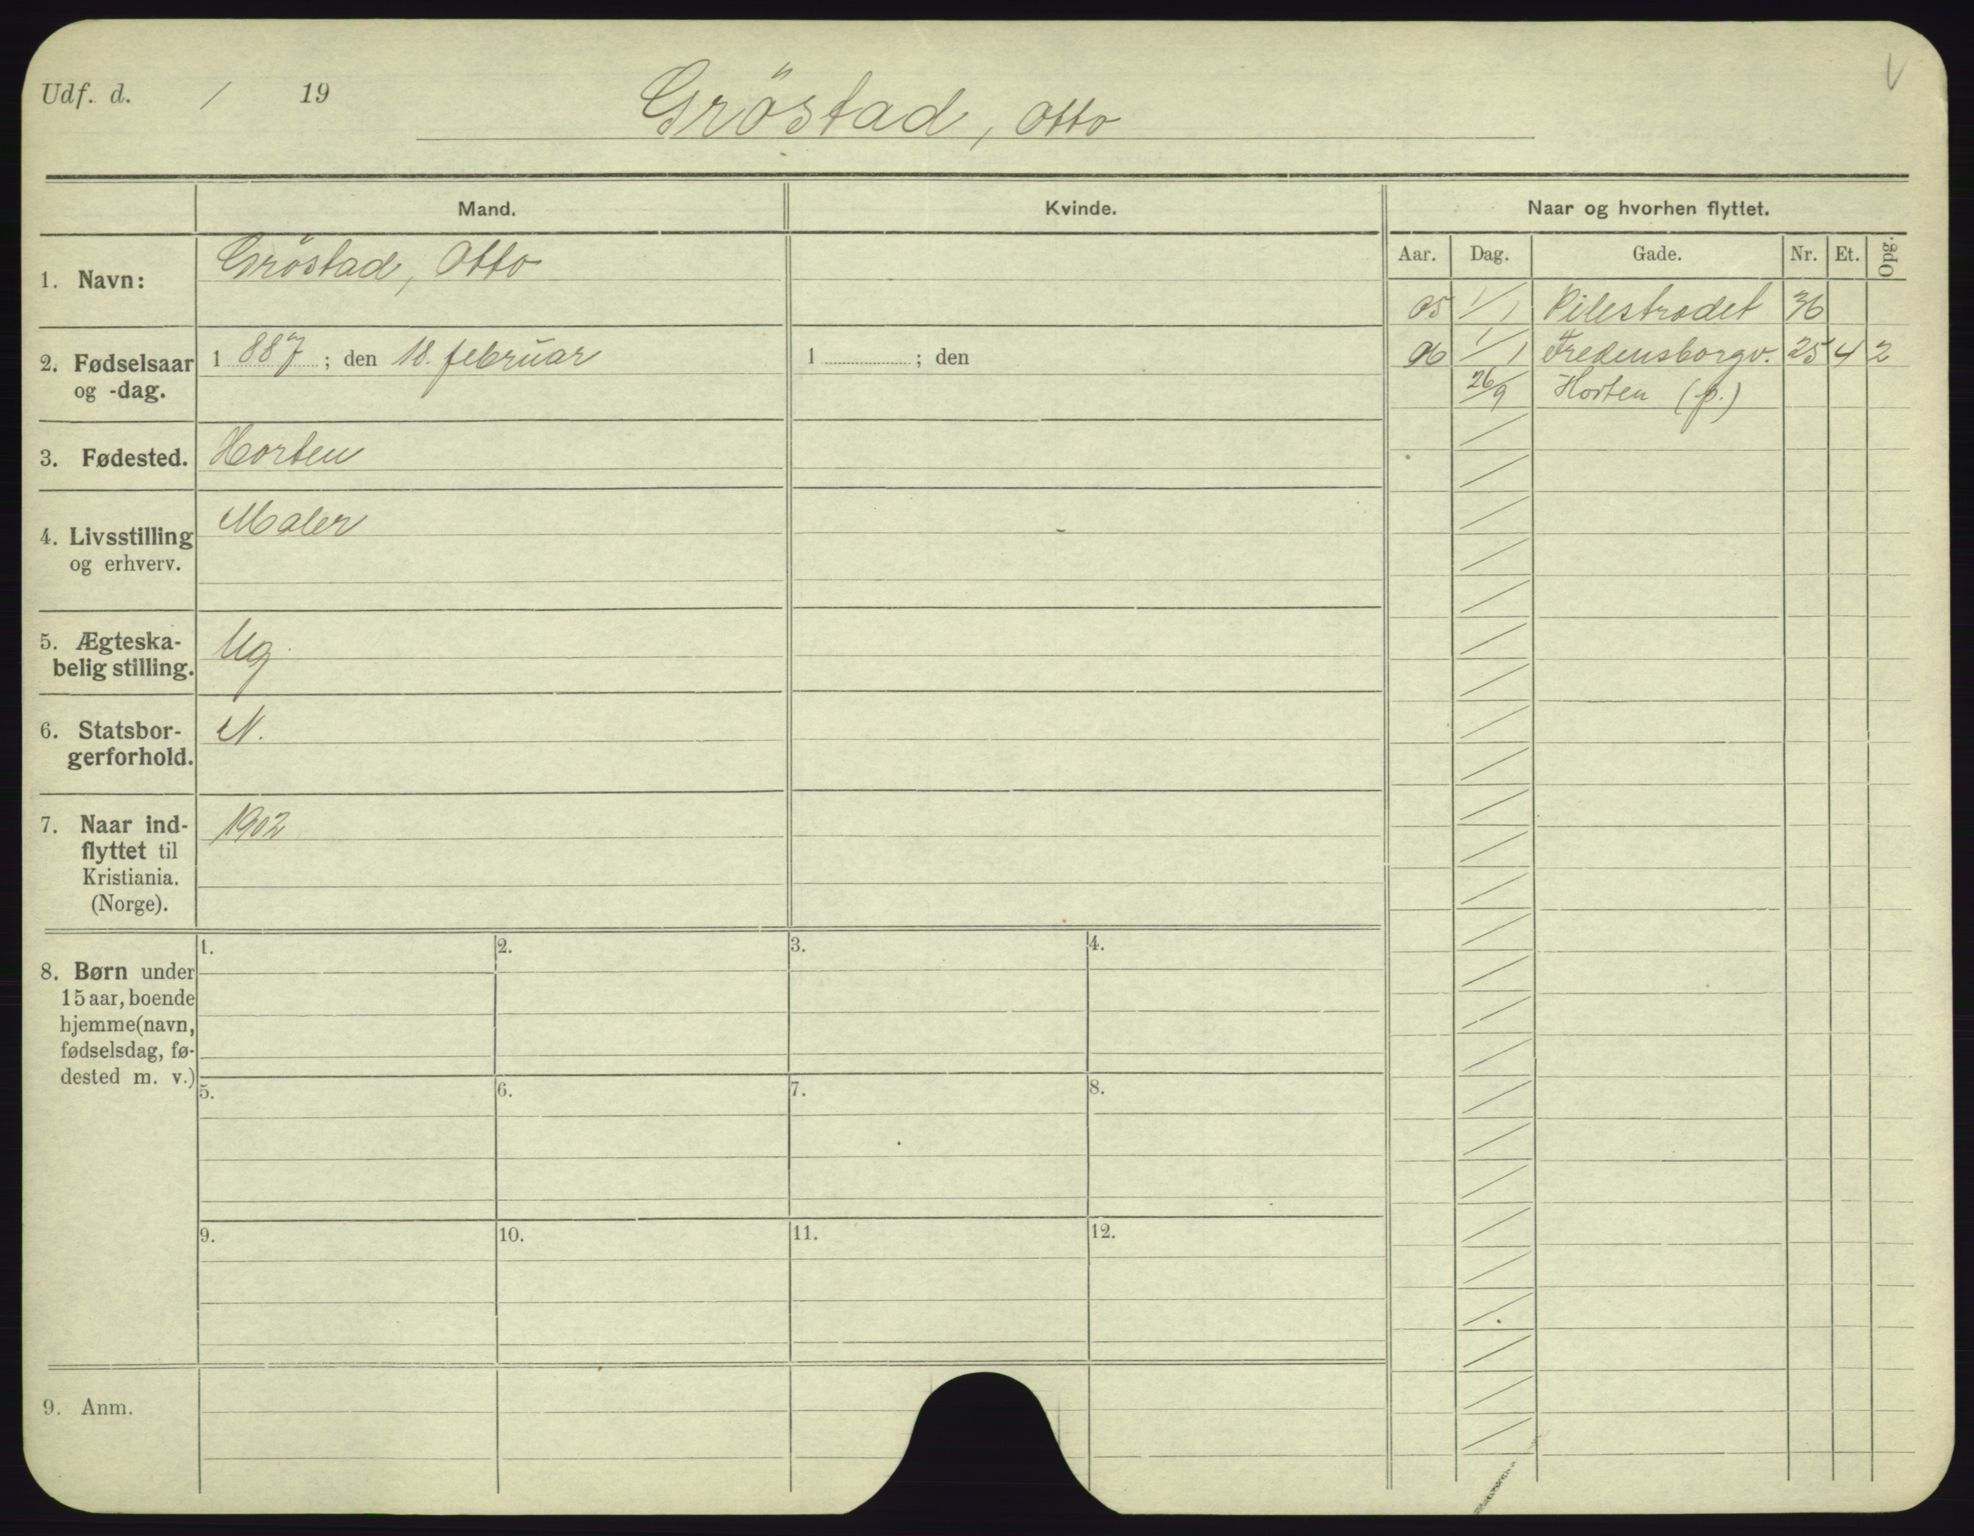 Udf. d. / 19
Gröstad, Otto
V
Mand.
Kvinde.
Naar og hvorhen flyttet.
Aar. Dag. Gade. Nr. Et. Opg.
1. Navn: Gröstad, Otto
2. Fødselsaar og -dag. 1 887 ; den 18. februar
1 ; den
3. Fødested. Horten
4. Livsstilling og erhverv. Maler
5. Ægteska-
belig stilling. Ug
6. Statsbor-
gerforhold. N.
7. Naar ind-
flyttet til
Kristiania.
(Norge). 1902
05 1/1 Pilestrædet 36
06 1/1 Fredensborgv. 25 4 2
26/9 Horten (p.)
8. Børn under
15 aar, boende
hjemme (navn,
fødselsdag, fø-
dested m. v.)
1. 2. 3. 4.
5. 6. 7. 8.
9. 10. 11. 12.
9. Anm.